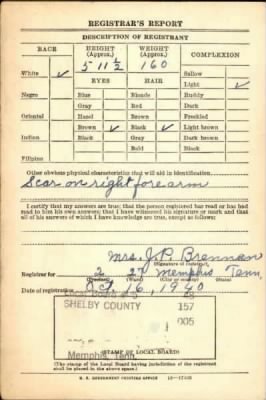 REGISTRAR'S REPORT
DESCRIPTION OF REGISTRANT
RACE HEIGHT (Approx.) WEIGHT (Approx.) COMPLEXION
5 11½ 160 Sallow
White ✓ EYES HAIR Light ✓
Negro Blue Blonde Ruddy
Gray Red Dark
Oriental Hazel Brown Freckled
Brown ✓ Black ✓ Light brown
Indian Black Gray Dark brown
Bald Black
Filipino
Other obvious physical characteristics that will aid in identification
Scar on right forearm
I certify that my answers are true; that the person registered has read or has had
read to him his own answers; that I have witnessed his signature or mark and that
all of his answers of which I have knowledge are true, except as follows:
Mrs. J. P. Brennan
(Signature of registrar)
Registrar for 2 27 Memphis Tenn.
Date of registration Oct 16, 1940
SHELBY COUNTY 157
005
Memphis, Tenn.
(STAMP OF LOCAL BOARD)
(The stamp of the Local Board having jurisdiction of the registrant
shall be placed in the above space.)
U. S. GOVERNMENT PRINTING OFFICE